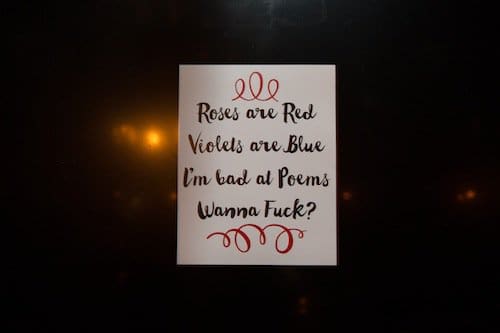 Roses are Red
Violets are Blue
I'm bad at Poems
Wanna Fuck?